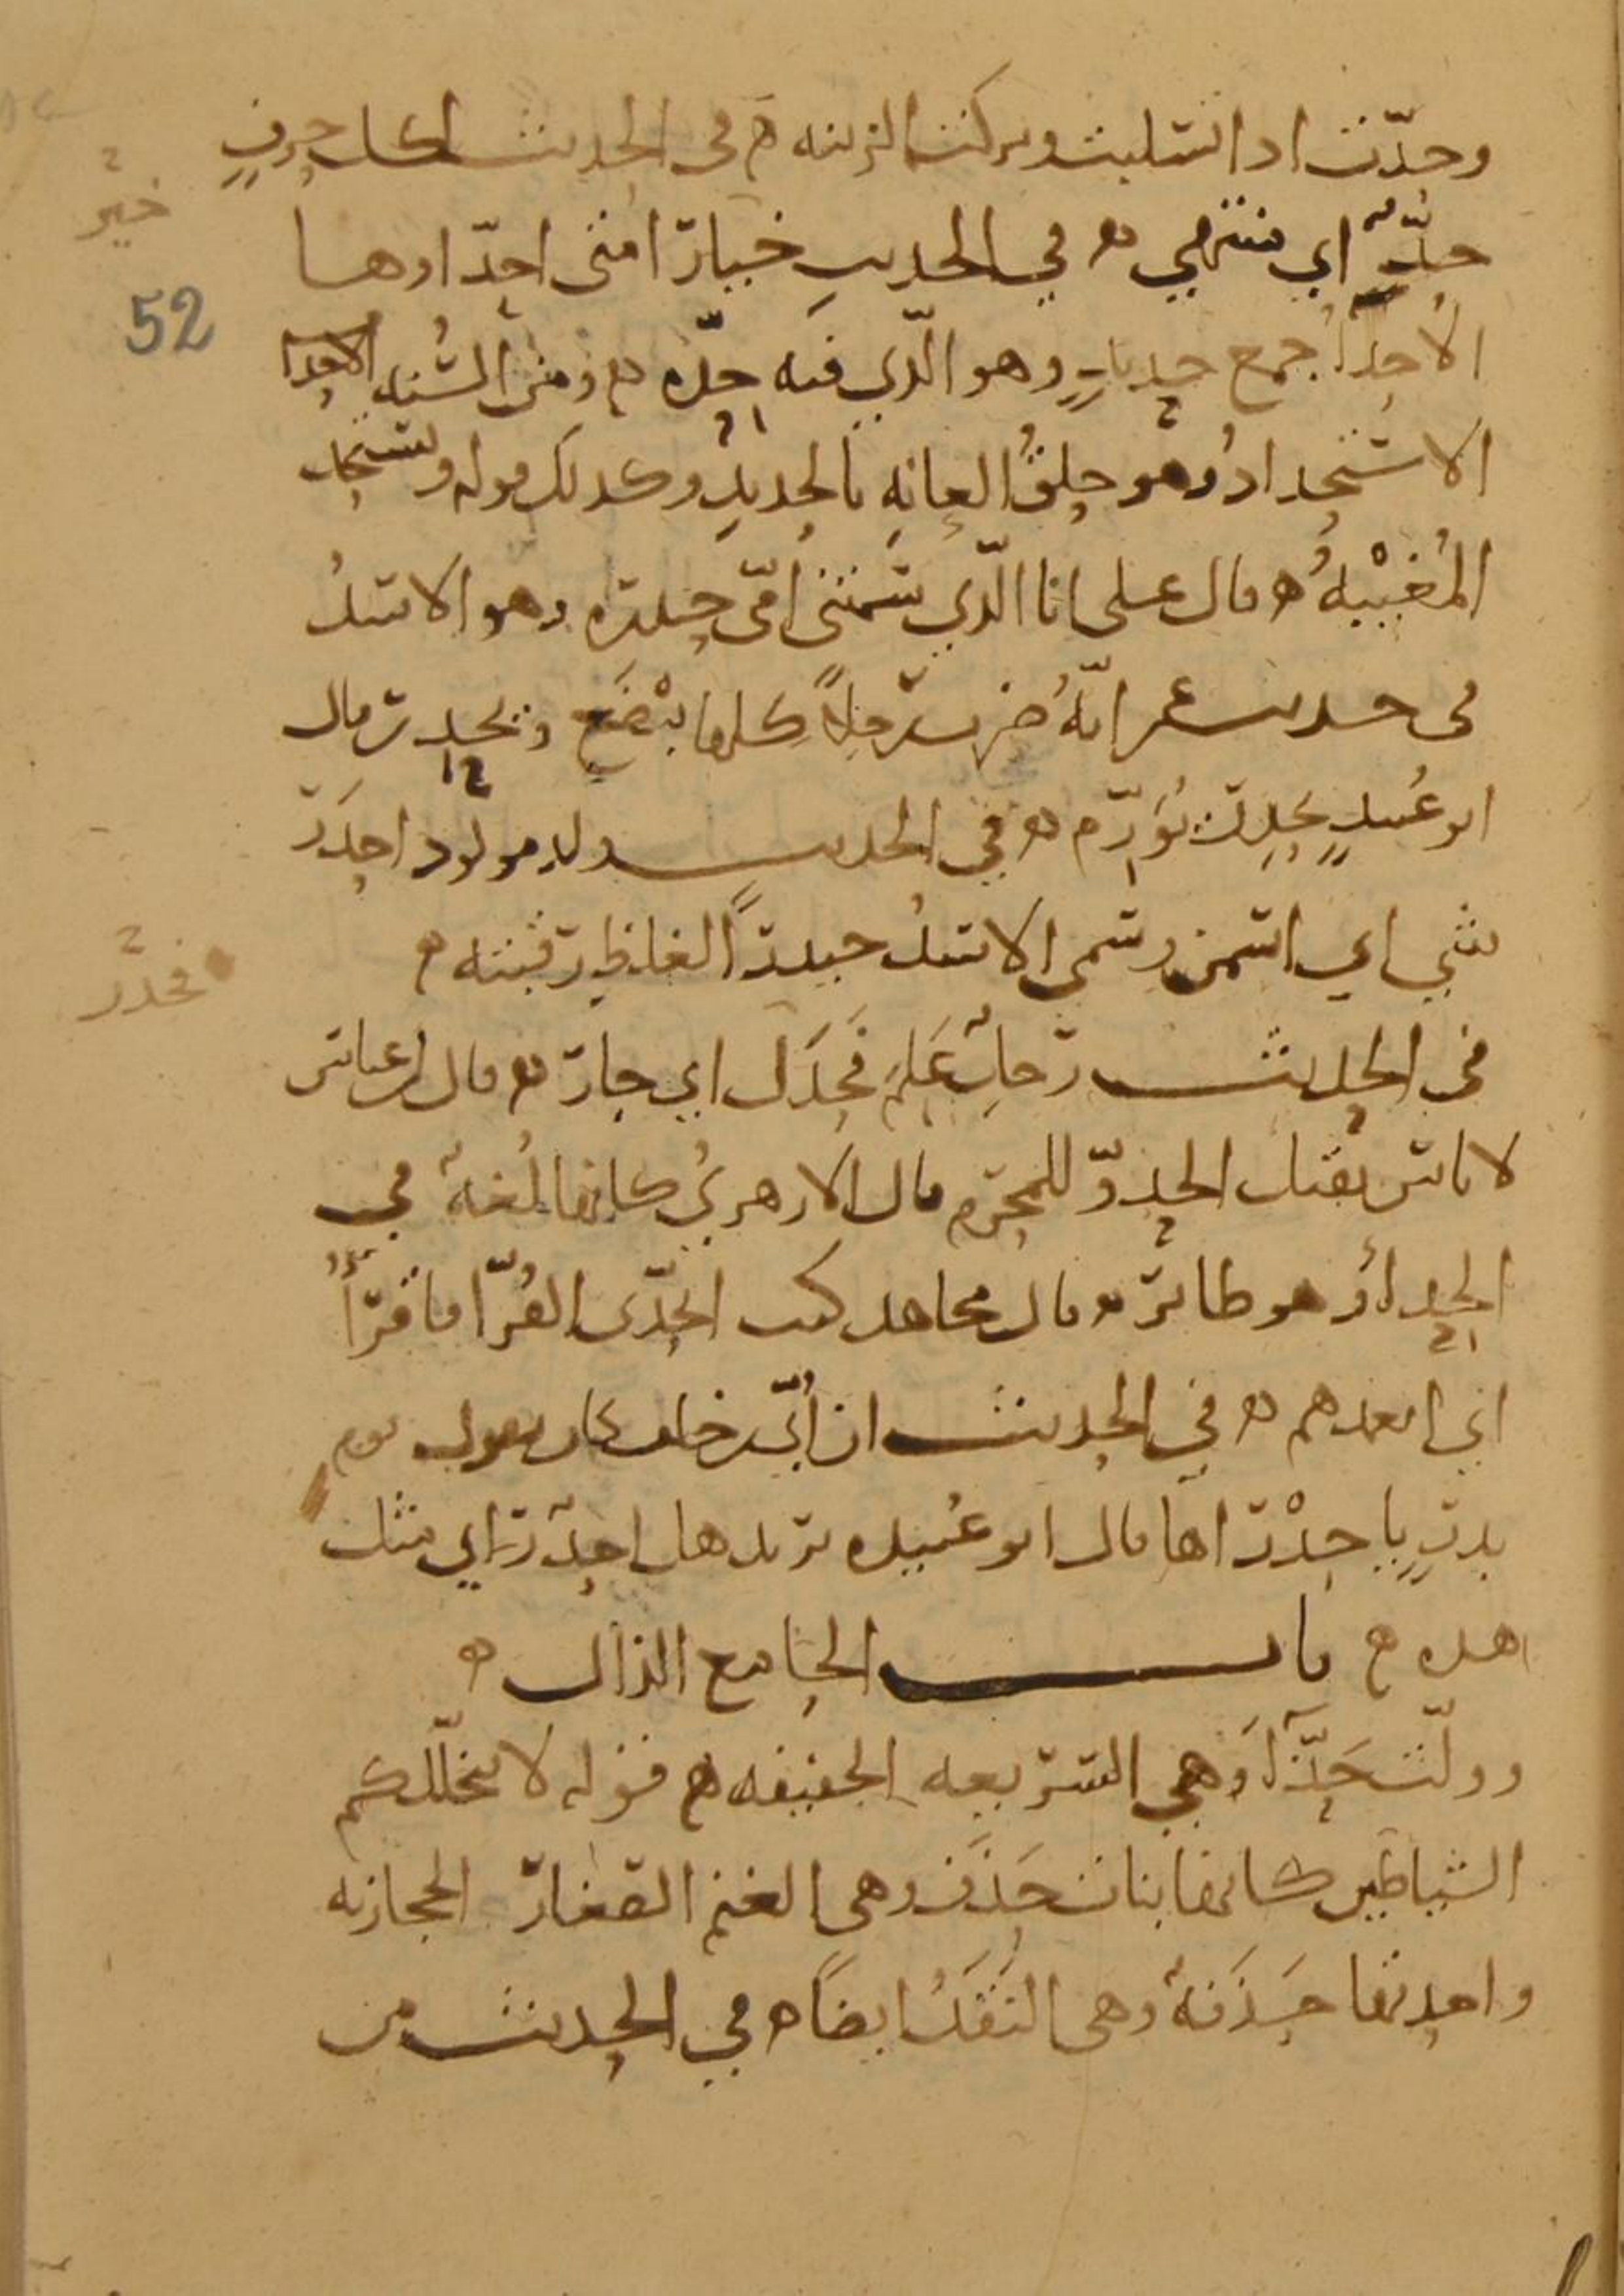 وحدّت اذا تسلبت وتركت الزينة ه في الحديث لكل حرفٍ
حدٌّ اي منتهى ه في الحديث خيار امتي احدّاوها
خير
52
الاحدّا جمع حديدٍ وهو الّذي فيه حدّه ه ومن السُّنه
الاستحدادُ وهو حلقُ العانهِ بالحديدِ وكذلك قوله وتستحد
المُغيْبهُ ه قال علي انا الّذي سمتني امّي حيدره وهو الاسدُ
في حديث عمر انّهُ ضرب رجلاً كلها يبْضع ويحدر قال
ابو عبيدٍ يحدرُ يُورّم ه في الحديث ولد مولود احدَر
شي اي اسمن وسمي الاسدُ حيدرًا لغلظ رقبته ه
فحدر
في الحديث رجلٌ عَلِمَ فَحَدَل اي جار ه قال ابن عباس
لا باس بقتل الحدوّ للمحرم قال الازهريُ كانها لُغهٌ في
الحدأ وهو طاير ه قال مجاهد كنت اتحدّى القُرّا فاقرأُ
اي اتعمدهم ه في الحديث ان أُبيّ بن خلف كان يقول يوم
بدرٍ يا حدْراها قال ابو عُبيده يريد هل احدٌ راي مثل
هذه ه باب الحا مع الذال ه
وولّت حَذّآ وهي السريعه الخفيفه ه قوله لا يتخلّلكم
الشياطين كانها بنات حَذَف وهي الغنم الصغار الحجازيه
واحدتها حَذَفهٌ وهي النَقَدُ ايضاً ه في الحديث من